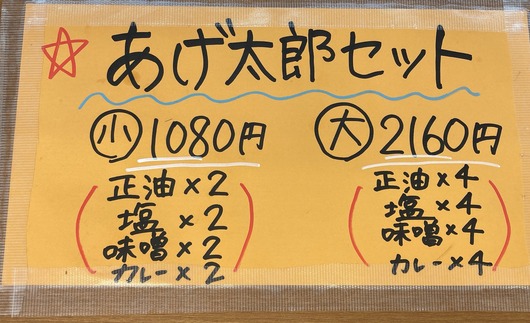 ☆あげ太郎セット
小 1080円
正油×2
塩×2
味噌×2
カレー×2
大 2160円
正油×4
塩×4
味噌×4
カレー×4